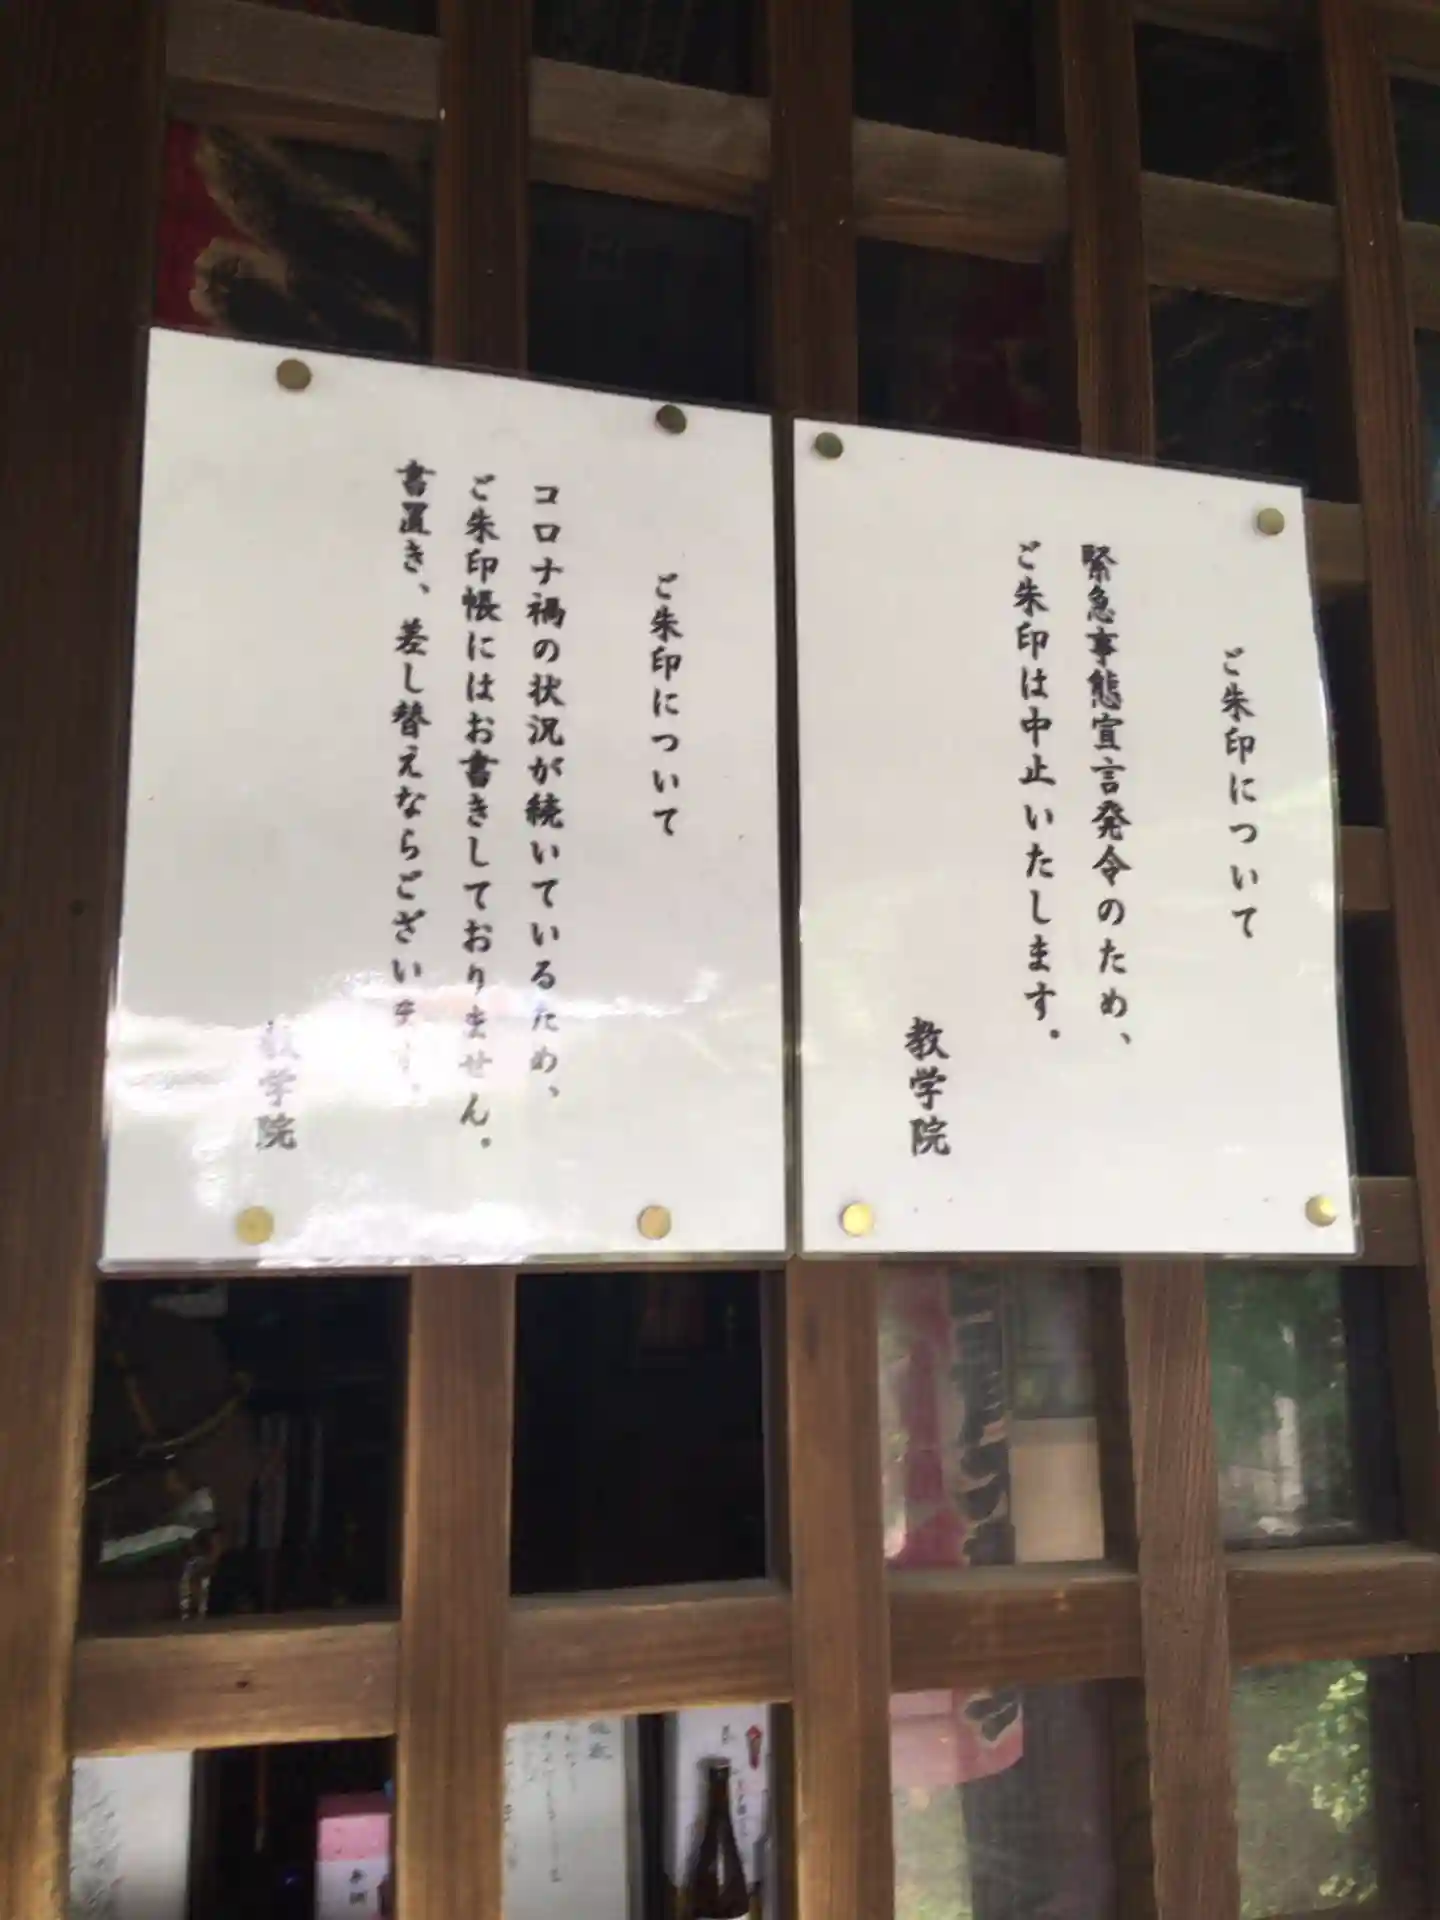 ご朱印について
緊急事態宣言発令のため、
ご朱印は中止いたします。
教学院
ご朱印について
コロナ禍の状況が続いているため、
ご朱印帳にはお書きしておりません。
書置き、差し替えならございます。
教学院